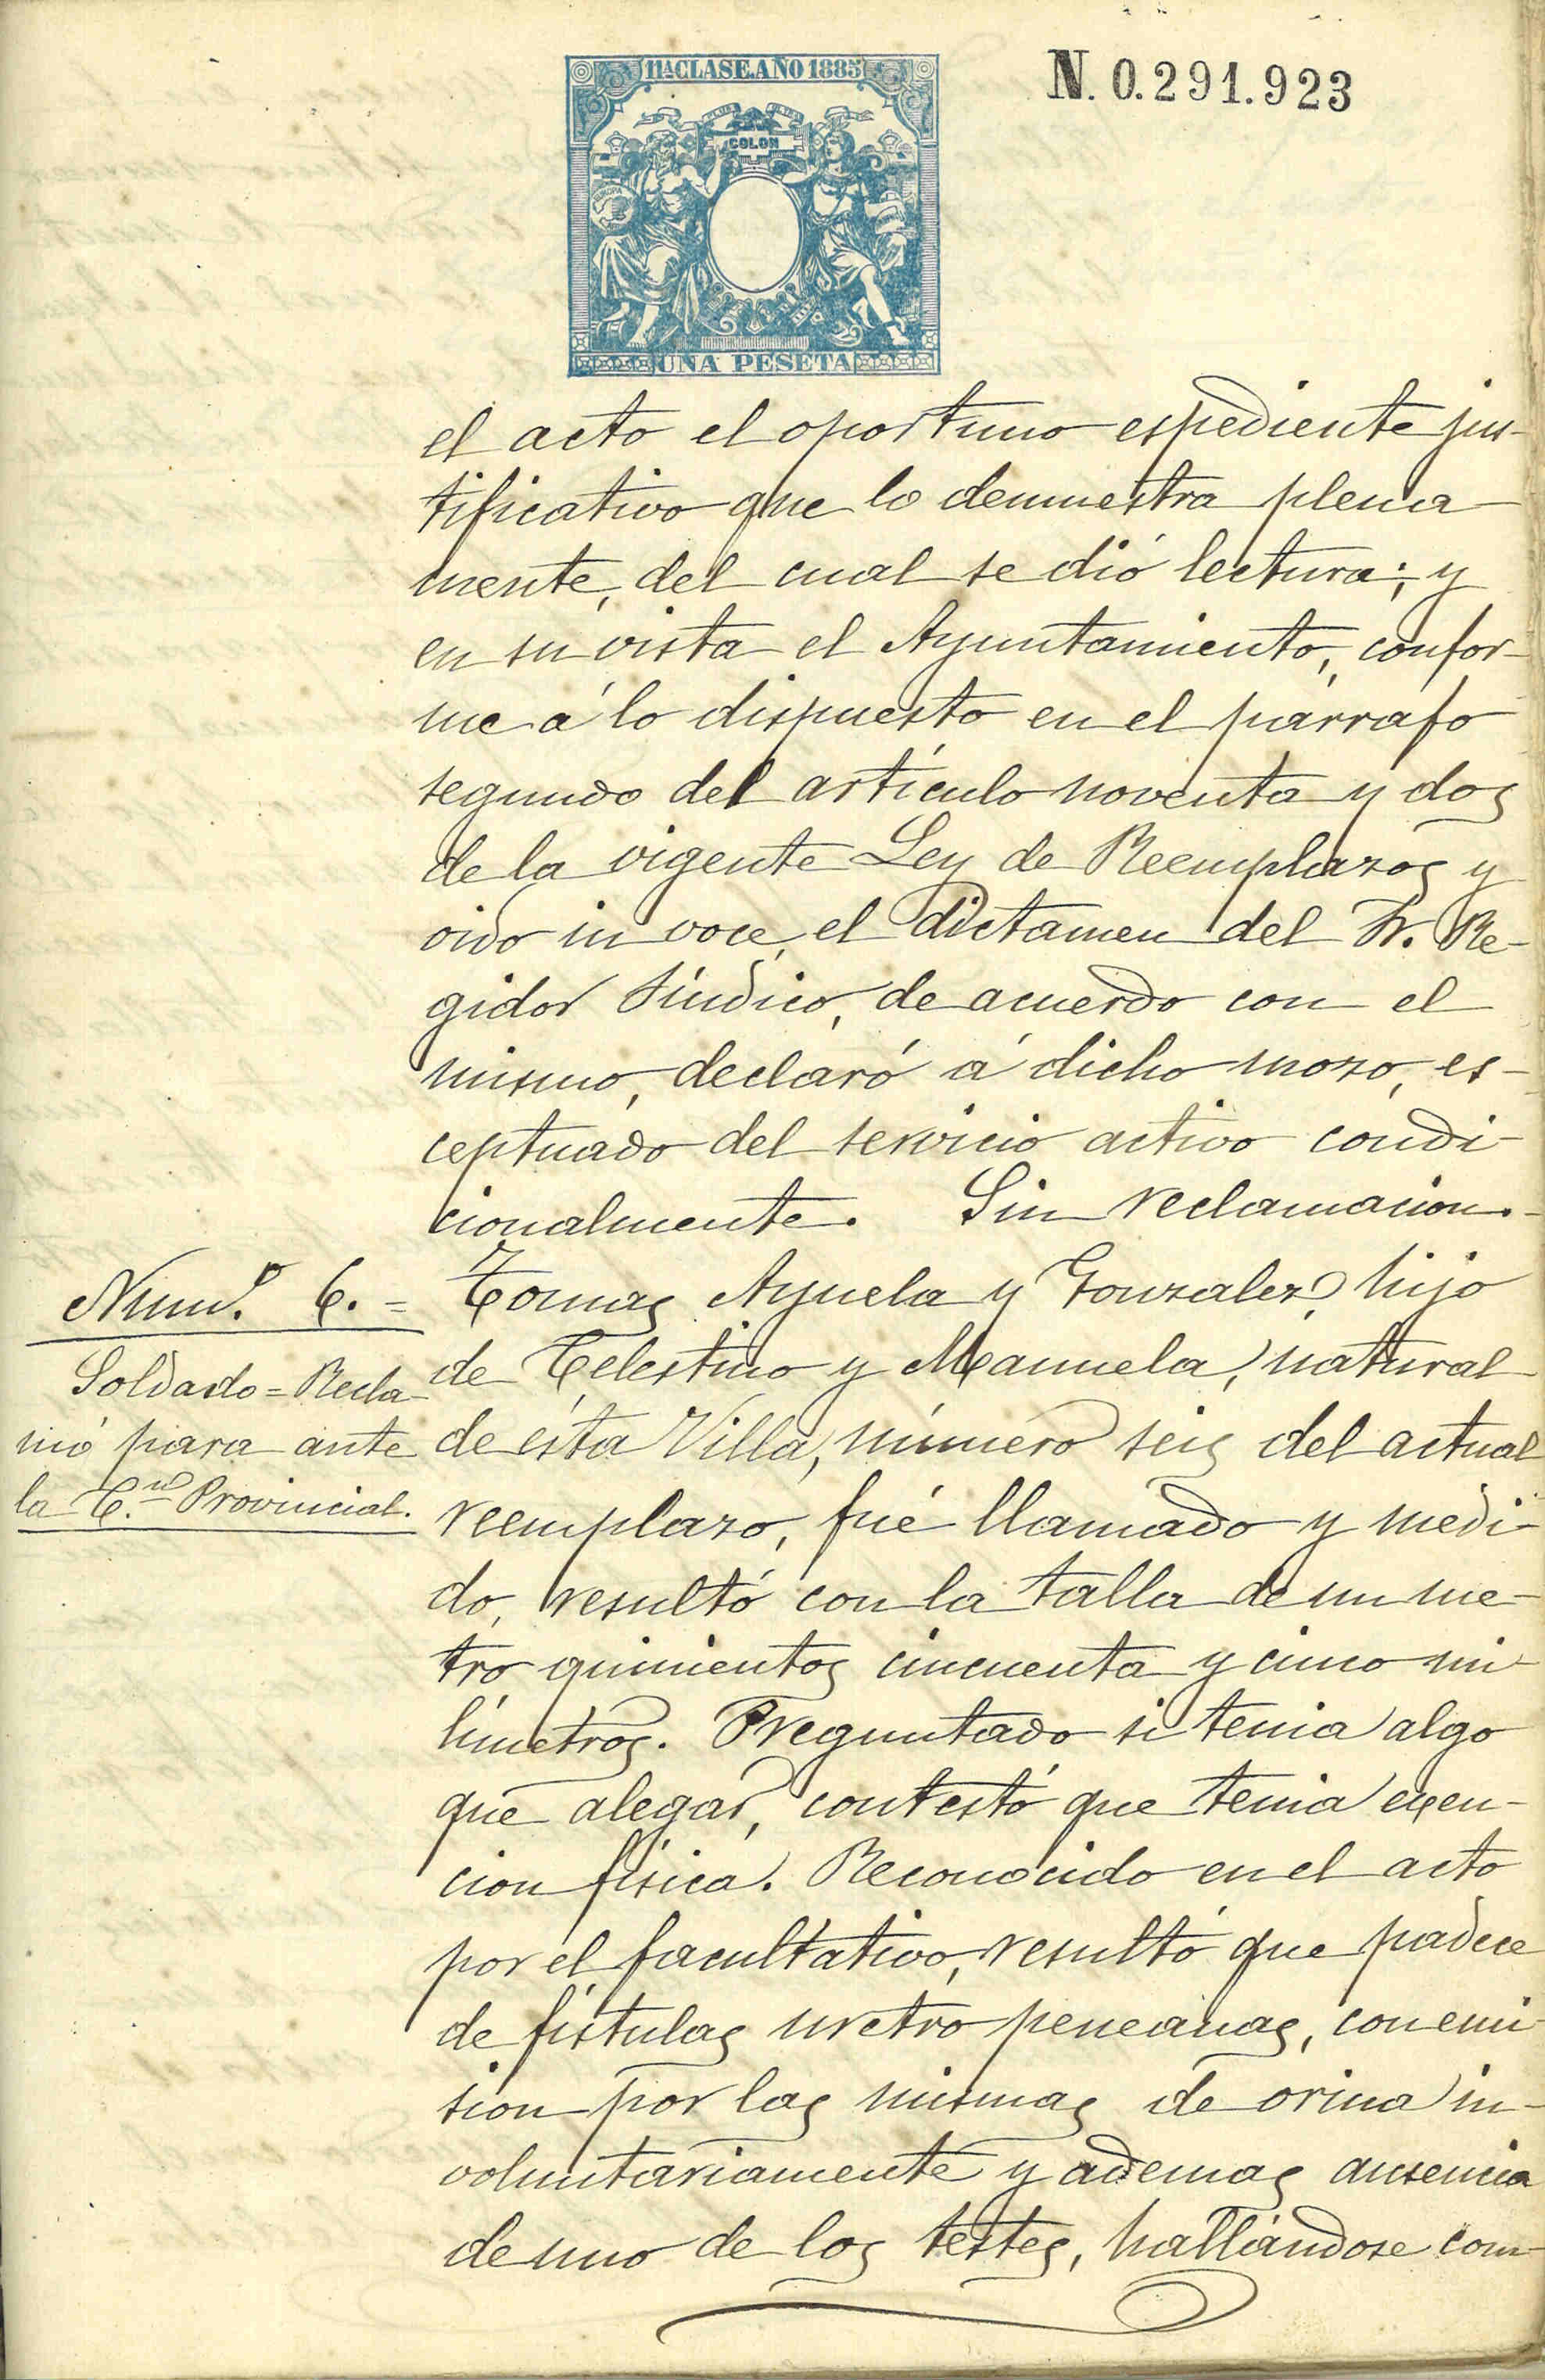 11ª CLASE. AÑO 1885
N. 0.291.923
COLON
EUROPA
UNA PESETA
el acto el oportuno espediente jus-
tificativo que lo demuestra plena-
mente, del cual se dió lectura; y
en su vista el Ayuntamiento, confor-
me á lo dispuesto en el párrafo
segundo del artículo noventa y dos
de la vigente Ley de Reemplazos y
oido in voce, el dictamen del Sr. Re-
gidor Síndico, de acuerdo con el
mismo, declaró á dicho mozo, es-
ceptuado del servicio activo condi-
cionalmente. Sin reclamacion.-
Num.º 6. =
Soldado = Recla-
mó para ante
la C.on Provincial.
Tomas Ayuela y Gonzalez, hijo
de Celestino y Manuela, natural
de ésta Villa, número seis del actual
reemplazo, fué llamado y medi-
do, resultó con la talla de un me-
tro quinientos cincuenta y cinco mi-
límetros. Preguntado si tenia algo
que alegar, contestó que tenia exen-
cion física. Reconocido en el acto
por el facultativo, resultó que padece
de fístulas uretro peneanas, con emi-
sion por las mismas de orina in-
voluntariamente y ademas ausencia
de uno de los testes, hallándose com-